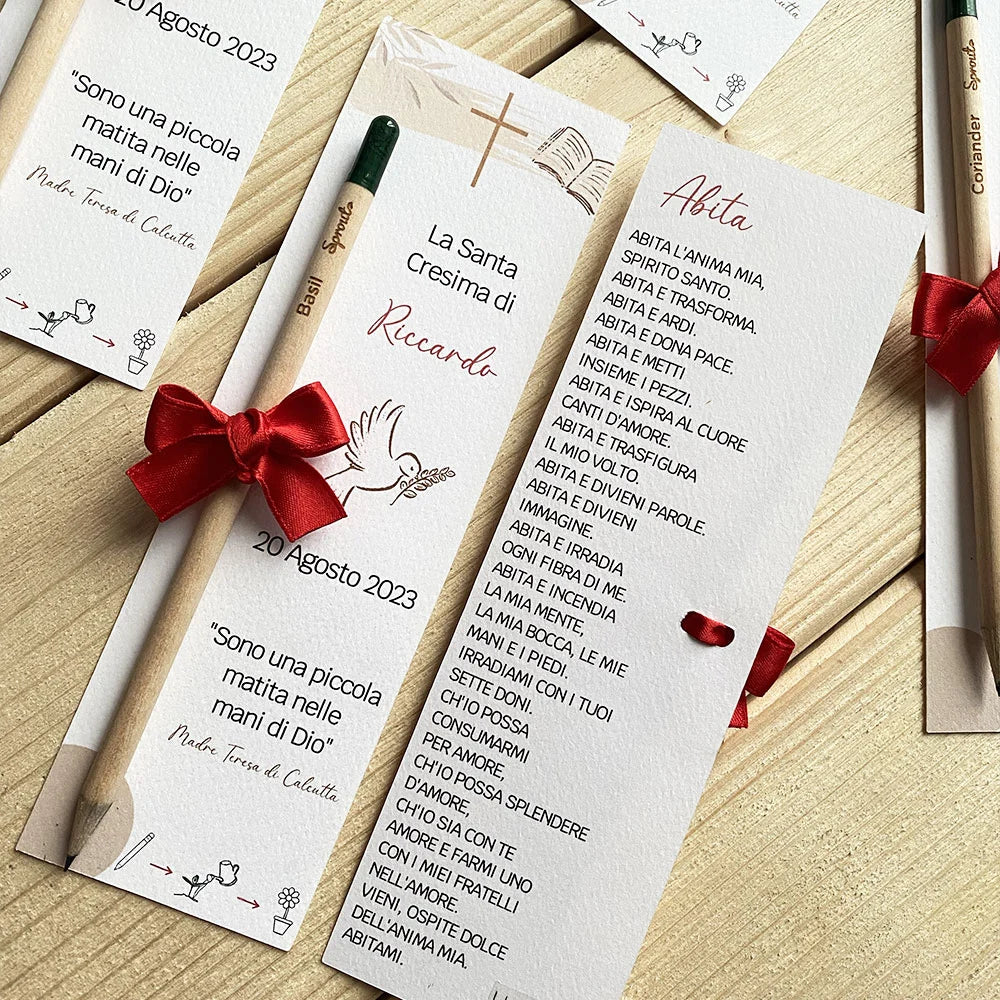 20 Agosto 2023
"Sono una piccola
matita nelle
mani di Dio"
Madre Teresa di Calcutta
La Santa
Cresima di
Riccardo
Basil Sprout
20 Agosto 2023
"Sono una piccola
matita nelle
mani di Dio"
Madre Teresa di Calcutta
Abita
ABITA L'ANIMA MIA,
SPIRITO SANTO.
ABITA E TRASFORMA.
ABITA E ARDI.
ABITA E DONA PACE.
ABITA E METTI
INSIEME I PEZZI.
ABITA E ISPIRA AL CUORE
CANTI D'AMORE.
ABITA E TRASFIGURA
IL MIO VOLTO.
ABITA E DIVIENI PAROLE.
ABITA E DIVIENI
IMMAGINE.
ABITA E IRRADIA
OGNI FIBRA DI ME.
ABITA E INCENDIA
LA MIA MENTE,
LA MIA BOCCA, LE MIE
MANI E I PIEDI.
IRRADIAMI CON I TUOI
SETTE DONI.
CH'IO POSSA
CONSUMARMI
PER AMORE,
CH'IO POSSA SPLENDERE
D'AMORE,
CH'IO SIA CON TE
AMORE E FARMI UNO
CON I MIEI FRATELLI
NELL'AMORE.
VIENI, OSPITE DOLCE
DELL'ANIMA MIA.
ABITAMI.
Calcutta
Coriander Sprout